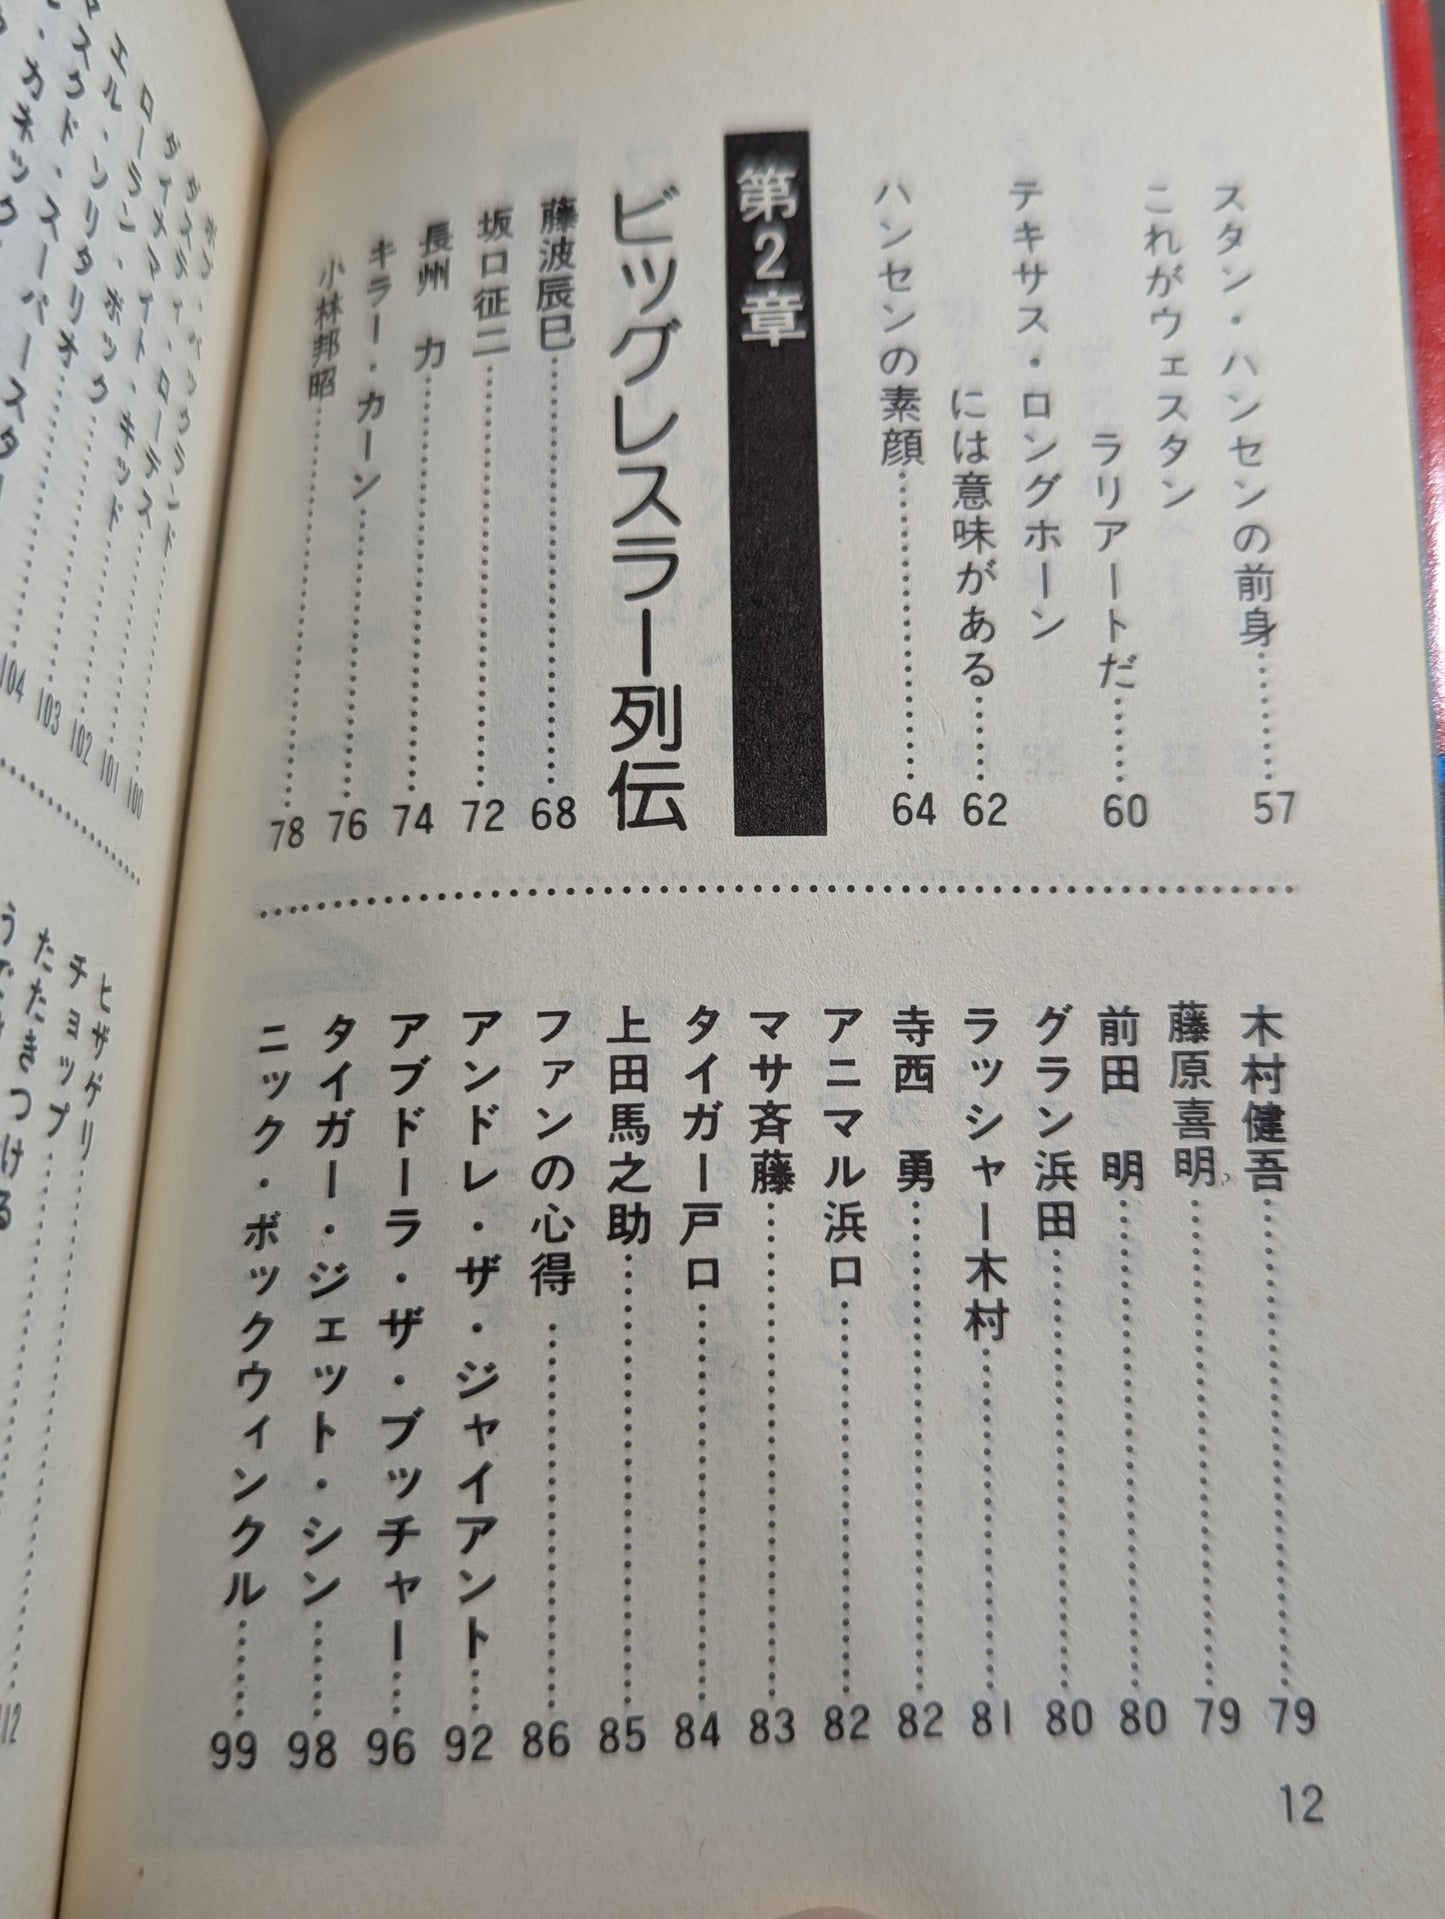 スタン・ハンセンの前身……57
これがウェスタン
ラリアートだ……60
テキサス・ロングホーン
には意味がある……62
ハンセンの素顔……64
第2章
ビッグレスラー列伝
藤波辰巳……68
坂口征二……72
長州 力……74
キラー・カーン……76
小林邦昭……78
木村健吾……79
藤原喜明……79
前田 明……80
グラン浜田……80
ラッシャー木村……81
寺西 勇……82
アニマル浜口……82
マサ斉藤……83
タイガー戸口……84
上田馬之助……85
ファンの心得……86
アンドレ・ザ・ジャイアント……92
アブドーラ・ザ・ブッチャー……96
タイガー・ジェット・シン……98
ニック・ボックウィンクル……99
12
ボブ・バックランド……100
ダスティ・ローデス……101
ダイナマイト・キッド……102
ローラン・ボック……103
エル・ソリタリオ……104
スウド・スーパースター
・カネック
ヒザゲリ
チョップ
たたきつける
112